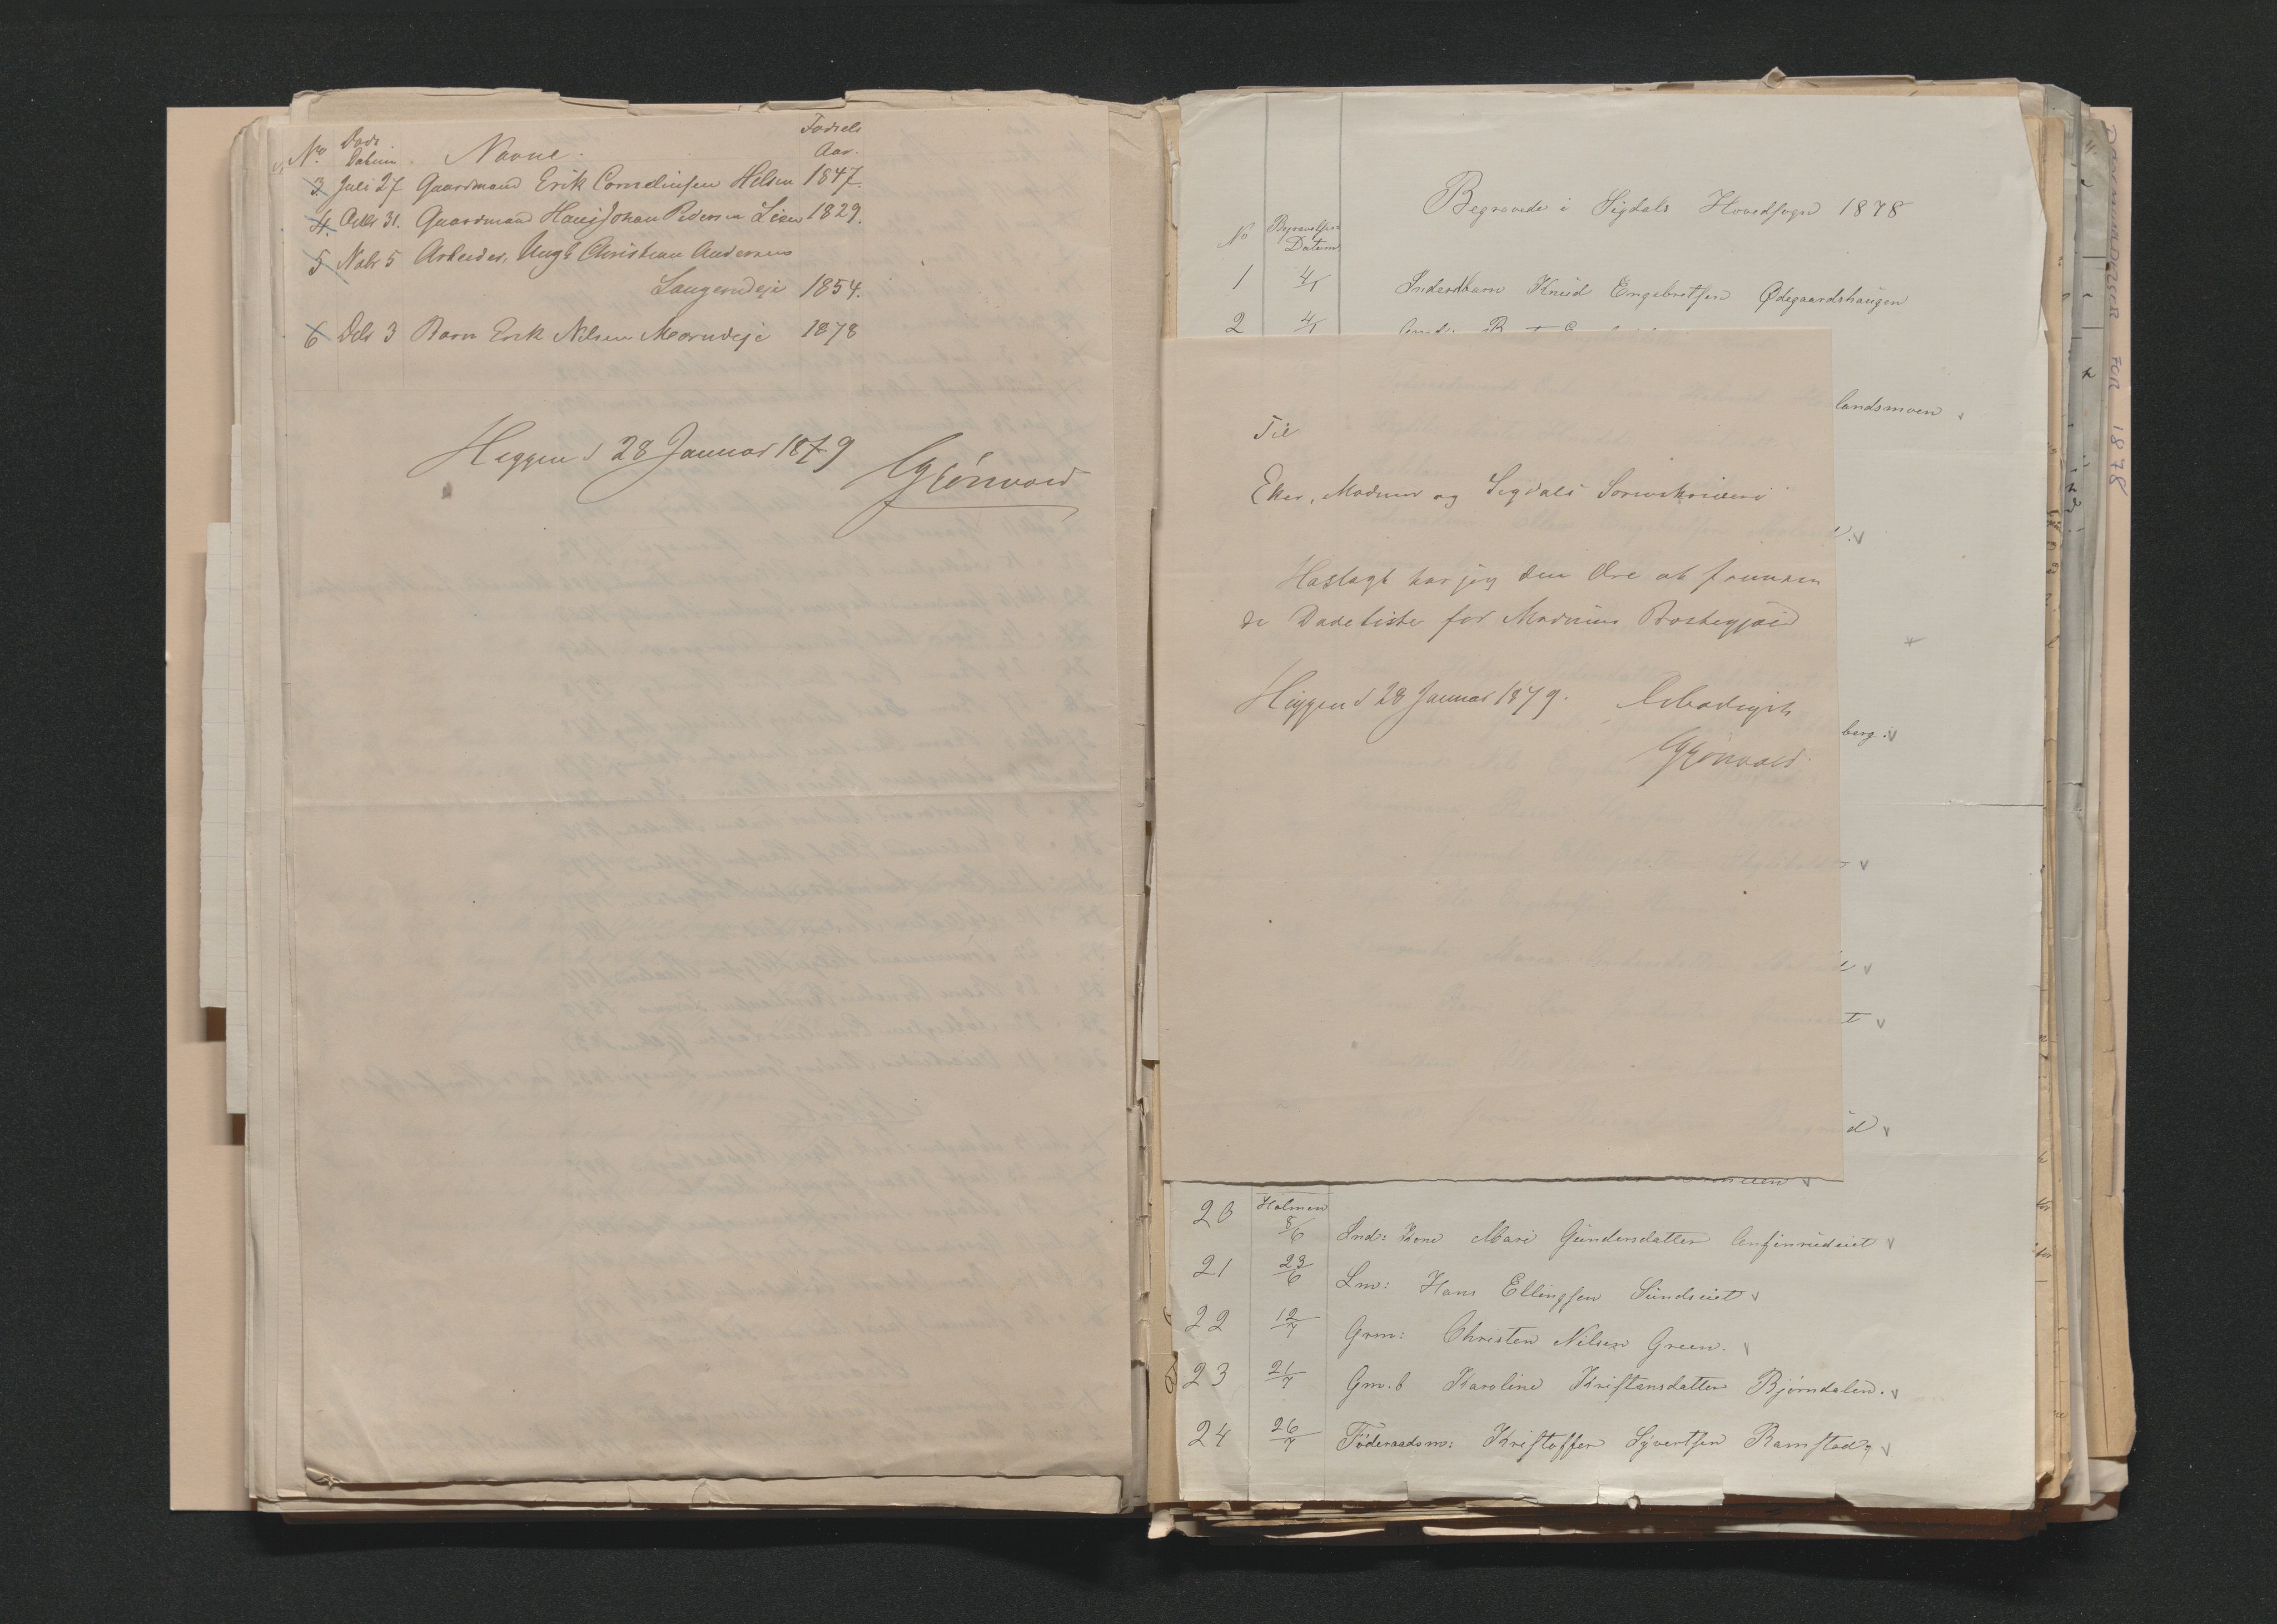 No. Døds Datum. Navne. Fødsels Aar.
3 Juli 27 Gaardmand Erik Corneliusen Helsen 1847.
4. Octbr 31. Gaardmand Hans Johan Pedersen Lien 1829.
5 Novbr 5 Arbeider, Ungk Christian Andersen
Langerudeje 1854.
6 Dcbr 3 Barn Erik Nilsen Moerudeje 1878
Heggen d 28 Januar 1879
Grönvold
DØDSANMELDELSER FOR 1878
Begravede i Sigdals Hovedsogn 1878
No Begravelses Datum
1 4/1 Inderstbarn Knud Engebretsen Ødegaardshaugen
2 4/1
landsmoen
Til
Eker, Modum og Sigdals Sorenskriveri
Hoslagt har jeg den Ære at fremsen
de Dødeliste for Modums Prestegjæld
Heggen d 28 Januar 1879. Ærbødigst
Grönvold
berg.
20 Holmen 8/6 Ind: Kone Mari Gundersdatter Anfinrudeiet
21 23/6 Lm: Hans Ellingsen Sundseiet
22 12/7 Grm: Christen Nilsen Green.
23 21/7 Gm. b Karoline Kristensdatter Bjørndalen.
24 26/7 Föderaadsm: Kristoffer Syvertsen Ramstad,